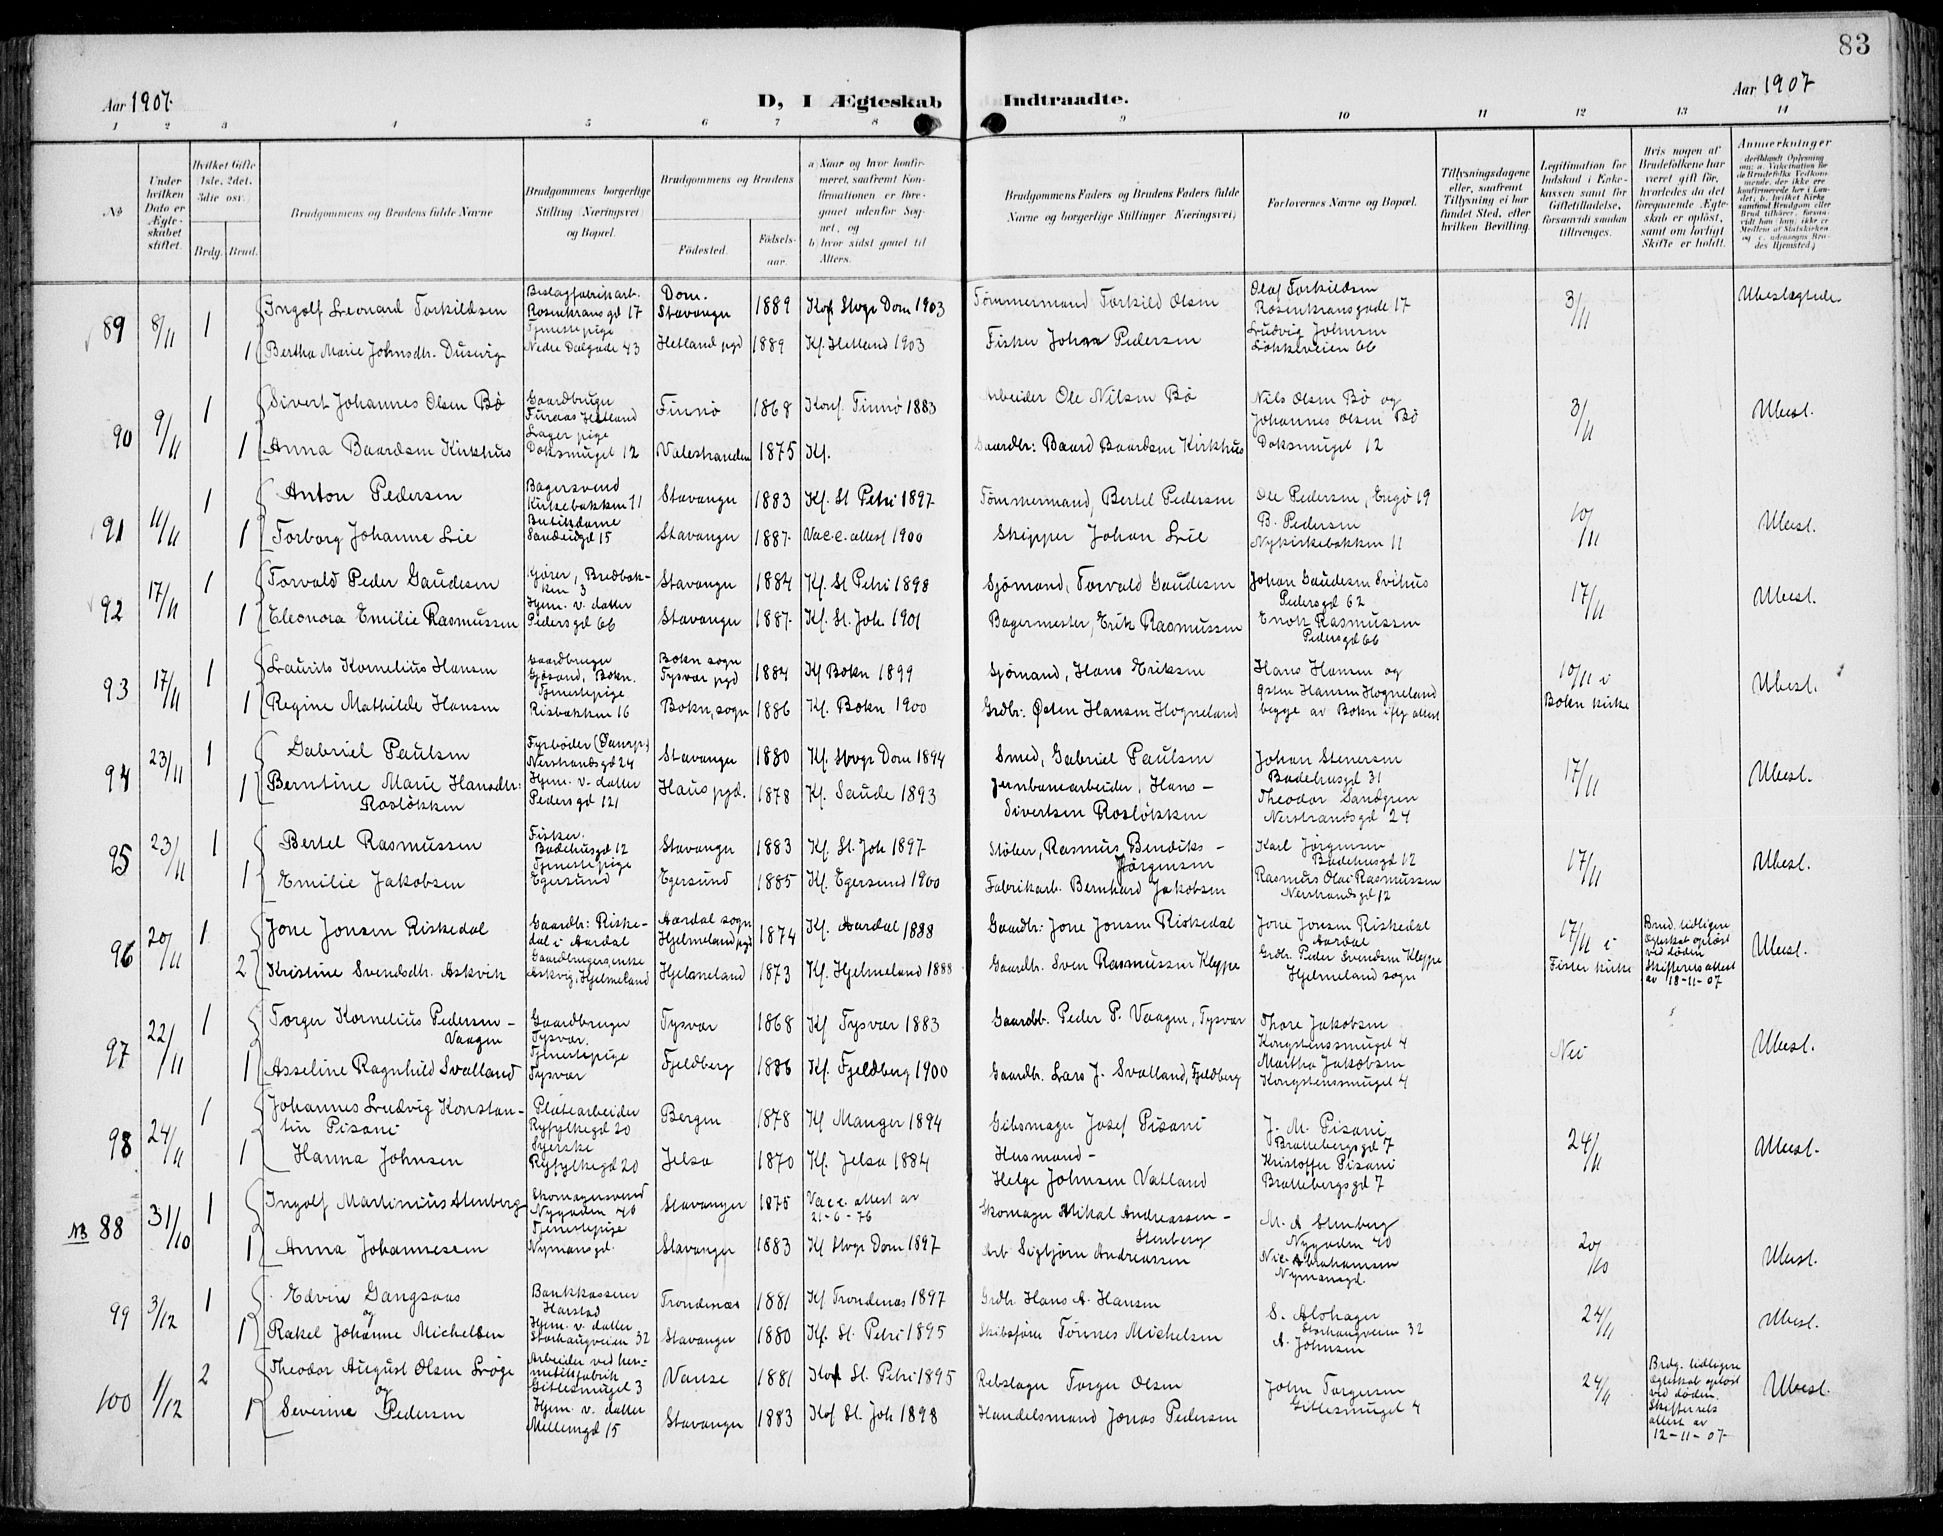 83
Aar 1907.
D, I Ægteskab Indtraadte.
Aar 1907
1 2 3 4 5 6 7 8 9 10 11 12 13 14
No
Under hvilken Dato er Ægteskabet stiftet.
Hvilket Gifte (1ste, 2det, 3die osv.)
Brdg. Brud.
Brudgommens og Brudens fulde Navne
Brudgommens borgerlige Stilling (Næringsvei) og Bopæl.
Brudgommens og Brudens
Fødested.
Fødselsaar.
a. Naar og hvor konfirmeret, saafremt Konfirmationen er foregaaet udenfor Sognet, og
b. hvor sidst gaaet til Alters.
Brudgommens Faders og Brudens Faders fulde Navne og borgerlige Stillinger (Næringsvei)
Forlovernes Navne og Bopæl.
Tillysningsdagene eller, saafremt Tillysning ei har fundet Sted, efter hvilken Bevilling.
Legitimation for Indskud i Enkekassen samt for Giftetilladelse, forsaavidt saadan tiltrænges.
Hvis nogen af Brudefolkene har været gift før, hvorledes da det foregaaende Ægteskab er opløst, samt om lovligt Skifte er holdt.
Anmerkninger
89 8/11 1 Ingolf Leonard Torkildsen Beslagfabrikarb. Rosenkransgd 17 Dom. Stavanger 1889 Kof Stvgr Dom 1903 Tømmermand Torkild Olsen Olaf Torkildsen Rosenkransgade 17 3/11 Ubeslægtede
1 Bertha Marie Johnsdtr. Dusevig Tjenestepige Nedre Dalgade 43 Hetland pgd 1889 Kf. Hetland 1903 Fisker John Pedersen Ludvig Johnsen Løkkeveien 66
90 9/11 1 Sivert Johannes Olsen Bø Gaardbruger Furaas Hetland Finnø 1868 Konf. Finnø 1883 Arbeider Ole Nilsen Bø Nils Olsen Bø og Johannes Olsen Bø 3/11 Ubesl.
1 Anna Baardsen Kirkhus Lager pige Doksmuget 12 Valestranden 1875 Kf. Gaardbr: Baard Baardsen Kirkhus Doksmuget 12
91 11/11 1 Anton Pedersen Bagersvend Kirkebakken 11 Stavanger 1883 Kf. St Petri 1897 Tømmermand, Bertel Pedersen Ole Pedersen, Engø 19 10/11 Ubesl.
1 Torborg Johanne Lie Butikdame Sandeigd 15 Stavanger 1887 Vacc. attest 1900 Skipper Johan Lie B. Pedersen Nykirkebakken 11
92 17/11 1 Torvald Peder Gaudesen Gjører, Bredbakken 3 Stavanger 1884 Kf. St Petri 1898 Sjømand, Torvald Gaudesen Johan Gaudesen Svihus Pedersgd 62 17/11 Ubesl.
1 Eleonora Emilie Rasmussen Hjem. v. datter Pedersgd 66 Stavanger 1887 Kf. St. Joh. 1901 Bagermester, Erik Rasmussen Enok Rasmussen Pedersgd 66
93 17/11 1 Laurits Kornelius Hansen Gaardbruger Gjøsund, Bokn. Bokn sogn Tysvær pgd 1884 Kf Bokn 1899 Sjømand, Hans Eriksen Hans Hansen og 10/11 i Bokn kirke Ubesl.
1 Regine Mathilde Hansen Tjenestepige Risbakken 16 Bokn, sogn 1886 Kf. Bokn 1900 Grdbr: Østen Hansen Hogneland Østen Hansen Hogneland begge av Bokn iflg attest
94 23/11 1 Gabriel Paulsen Fyrbøder (Damsp.) Nerstrandsgd 24 Stavanger 1880 Kf. Stvgr Dom 1894 Smed, Gabriel Paulsen Johan Stenersen Badehusgd 31 17/11 Ubesl.
1 Berntine Marie Hansdtr: Rosløkken Hjem. v. datter Pedersgd 121 Haus pgd. 1878 Kf. Saude 1893 Jernbanearbeider, Hans Sivertsen Rosløkken Theodor Sandgren Nerstrandsgd 24
95 23/11 1 Bertel Rasmussen Fisker. Badehusgd 12 Stavanger 1883 Kf. St. Joh 1897 Støber, Rasmus Bendiks Jørgensen Karl Jørgensen Badehusgd 12 17/11 Ubesl.
1 Emilie Jakobsen Tjenestepige Egersund Egersund 1885 Kf. Egersund 1900 Fabrikarb. Bernhard Jakobsen Rasmus Olai Rasmussen Nerstrandsgd 12
96 20/11 1 Jone Jonsen Riskedal Gaardbr: Riskedal i Aardal Aardal sogn Hjelmeland pgd 1874 Kf. Aardal 1888 Gaardbr: Jone Jonsen Riskedal Jone Jonsen Riskedal Aardal 17/11 i Fister kirke Brud. tidligere Ægteskab opløst ved døden Skifterets attest av 18-11-07 Ubesl.
2 Kristine Svendsdtr. Askvik Gaardbrugerenke Askvig, Hjelmeland Hjelmeland 1873 Kf. Hjelmeland 1888 Gaardbr. Sven Rasmussen Kleppe Grdbr. Peder Svendsen Kleppe Hjelmeland sogn
97 22/11 1 Torger Kornelius Pedersen Vaagen Gaardbruger Tysvær. Tysvær 1868 Kf Tysvær 1883 Gaardbr. Peder P. Vaagen, Tysvær Thore Jakobsen Kongstenssmuget 4 Nei Ubesl.
1 Asseline Ragnhild Svalland Tjenestepige Tysvær Fjeldberg 1886 Kf. Fjeldberg 1900 Gaardbr. Lars J. Svalland, Fjeldberg Martha Jakobsen Kongstenssmuget 4
98 24/11 1 Johannes Ludvig Konstantin Pisani Platearbeider Ryfylkegd 20 Bergen 1878 Kf Manger 1894 Gibsmager Josef Pisani J. M. Pisani Brattebergsgd 7 24/11 Ubesl.
1 Hanna Johnsen Syerske Ryfylkegd 20 Jelsa 1870 Kf. Jelsa 1884 Husmand Helge Johnsen Vatland Kristoffer Pisani Brattebergsgd 7
NB 88 31/10 1 Ingolf Martinius Stenberg Skomagersvend Nygaden 40 Stavanger 1875 Vacc. attest av 21-6-76 Skomager Mikal Andreassen Stenberg M. A Stenberg Nygaden 40 20/10 Ubesl.
1 Anna Johannesen Tjenestepige Nymansgd. Stavanger 1883 Kf Stvgr Dom 1897 Arb Sigbjørn Andreassen Nic. Abrahamsen Nymansgd.
99 3/12 1 Edvin Gangsaas og Bankkasserer Harstad Trondenæs 1881 Kf Trondenæs 1897 Grdbr. Hans A. Hansen S. Alohager Storhaugveien 32 24/11 Ubesl.
1 Rakel Johanne Michelsen Hjem. v. datter Storhaugveien 32 Stavanger 1880 Kf. St. Petri 1895 Skibsfører Tønnes Michelsen A. Johnsen
100 1/12 2 Theodor August Olsen Lyge og Arbeider ved hermetikfabrik Gitlesmuget 3 Vanse 1881 Kof St. Petri 1895 Rebslager Torger Olsen John Torgersen Gitlesmuget 4 24/11 Brdg. tidligere Ægteskab opløst ved døden. Skifterets attest av 12-11-07 Ubesl.
1 Severine Pedersen Hjem. v. datter Mellemgd 15 Stavanger 1883 Kof St. Joh 1898 Handelsmand Jonas Pedersen